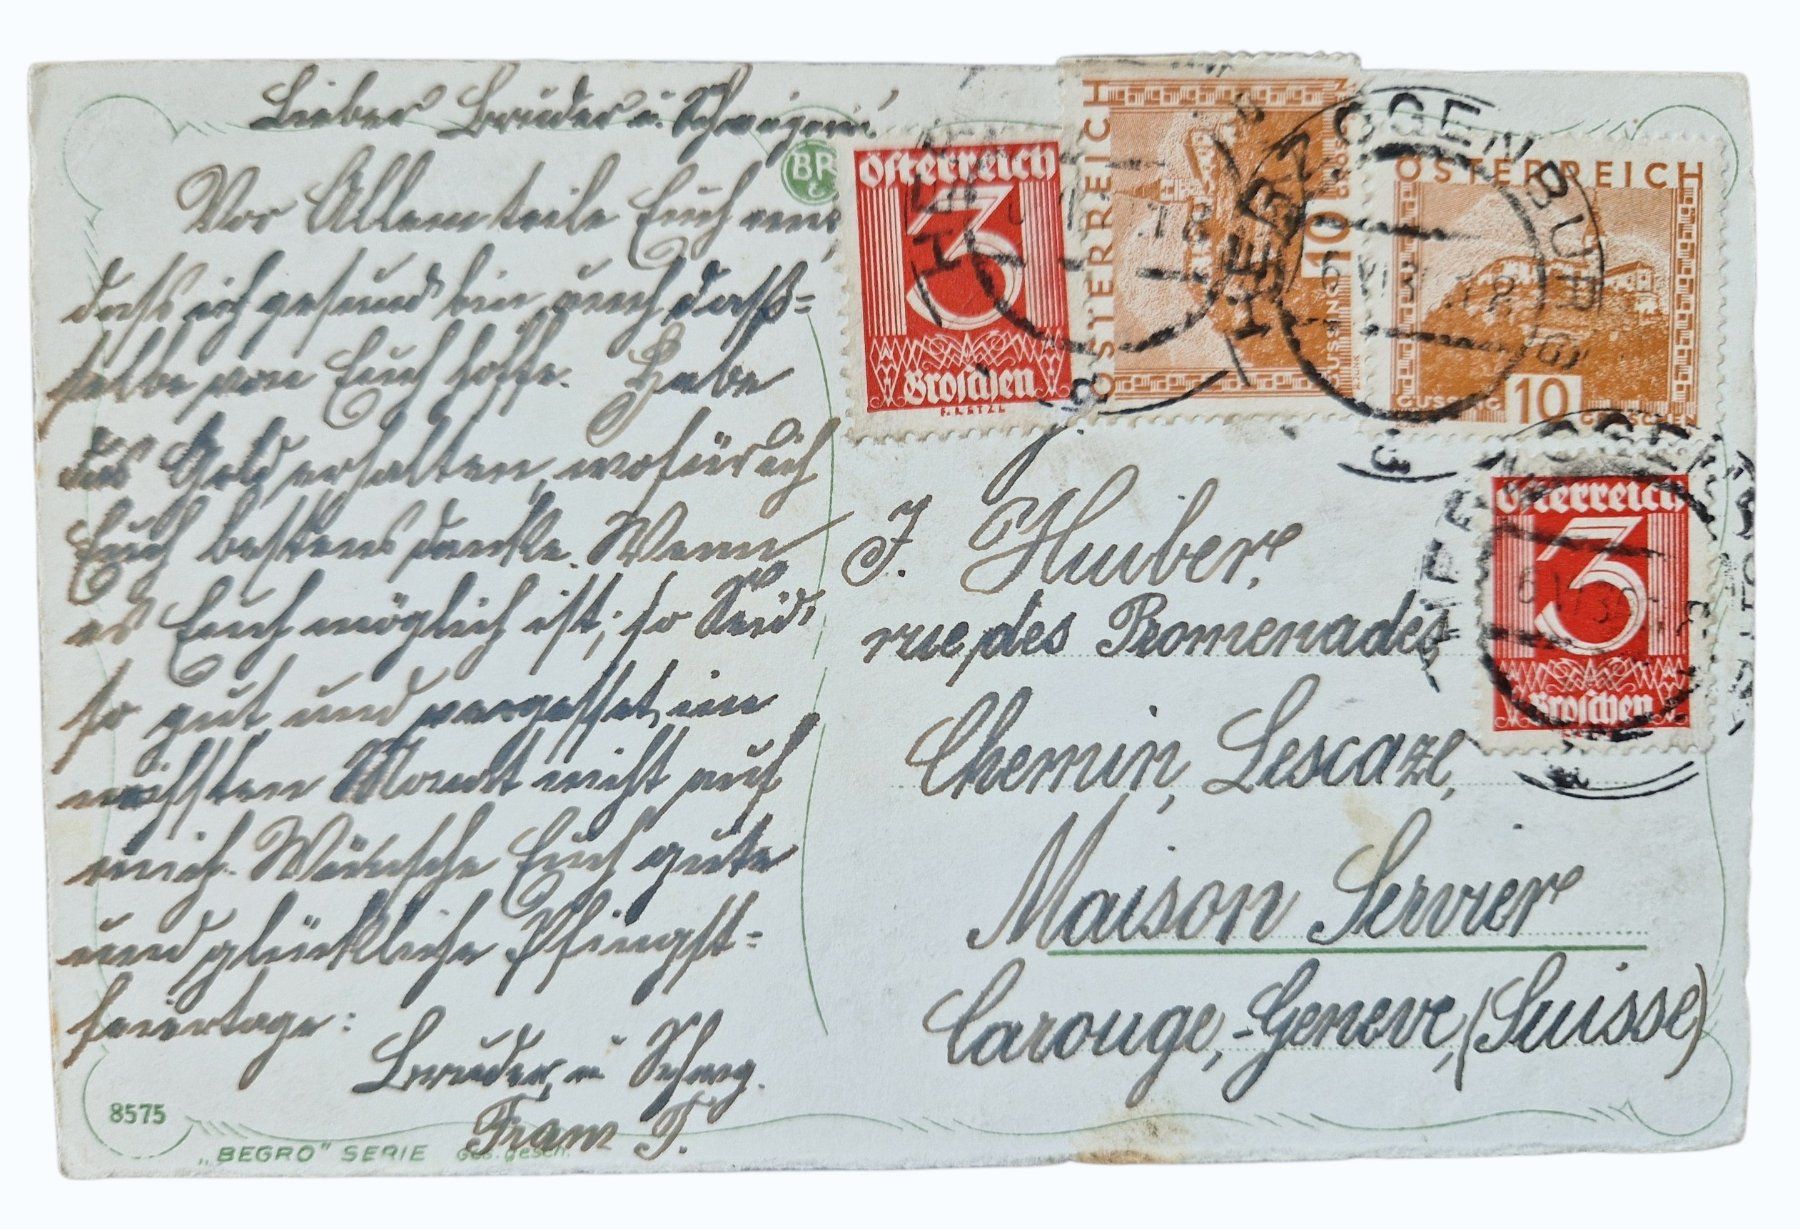 Lieber Bruder u. Schwägerin!
Vor Allem teile Euch mit,
dass ich gesund bin, auch daß=
selbe von Euch hoffe. Habe
das Geld erhalten, wofür ich
Euch bestens danke. Wenn
es Euch möglich ist, so Seid
so gut und vergesset im
nächsten Monat nicht auf
mich. Wünsche Euch gute
und glückliche Pfingst=
feiertage:
Bruder, u. Schwg.
Franz F.
8575
„BEGRO" SERIE Ges. gesch.
BR
österreich
3
Groschen
ÖSTERREICH
10
GROSCHEN
GÜSSING
ÖSTERREICH
GÜSSING 10 GROSCHEN
österreich
3
Groschen
HERZOGENBURG
J. Huiber,
rue, des Promenades
Chemin, Lescaze,
Maison Servier
Carouge,-Geneve, (Suisse)